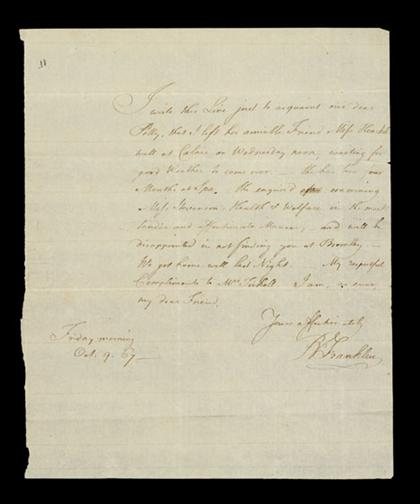 11
I write this Line just to acquaint our dear
Polly, that I left her amiable Friend Miss
well at Calais on Wednesday noon, waiting for
good Weather to come over. — She has been one
Month at Spa. She enquired after
Miss Stevenson's Health & Welfare in the most
tender and affectionate Manner, and will be
disappointed in not finding you at Bromley. —
We got home well last Night. My respectful
Compliments to Mrs. Tickell. I am, as ever,
my dear Friend,
Yours affectionately
B Franklin
Friday morning
Oct. 9. 67 —